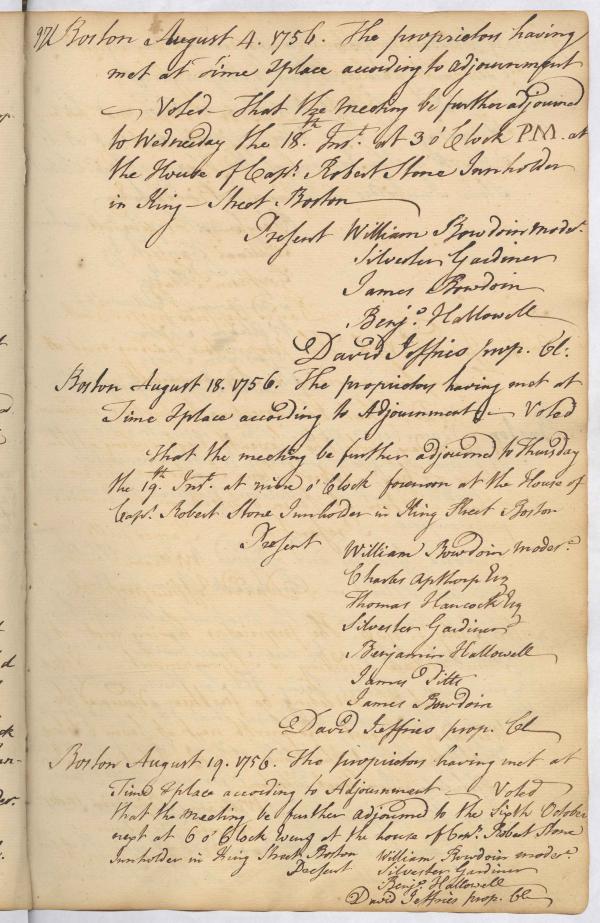 Boston August 4. 1756. The proprietors having
met at Time & place according to adjournment
Voted That the meeting be further adjourned
to Wednesday the 18.th Inst. at 3 o'Clock P.M. at
the House of Capt. Robert Stone Innholder
in King Street Boston
Present William Bowdoin moder.
Silvester Gardiner
James Bowdoin
Benj.a Hallowell
David Jeffries prop. Cl.
Boston August 18. 1756. The proprietors having met at
Time & place according to Adjournment Voted
That the meeting be further adjourned to Thursday
the 19.th Inst. at nine o'Clock forenoon at the House of
Capt. Robert Stone Innholder in King Street Boston
Present William Bowdoin moder.
Charles Apthorp Esq
Thomas Hancock Esq
Silvester Gardiner
Benjamin Hallowell
James Pitts
James Bowdoin
David Jeffries prop. Cl
Boston August 19. 1756. The proprietors having met at
Time & place according to Adjournment Voted
That the meeting be further adjourned to the Sixth October
next at 6 o'Clock Eveng at the house of Capt. Robert Stone
Innholder in King Street Boston William Bowdoin moder.
Present Silvester Gardiner
Benj.a Hallowell
David Jeffries prop. Cl